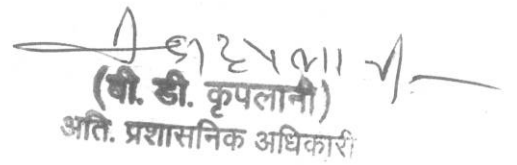 (बी. डी. कृपलानी)
अति. प्रशासनिक अधिकारी